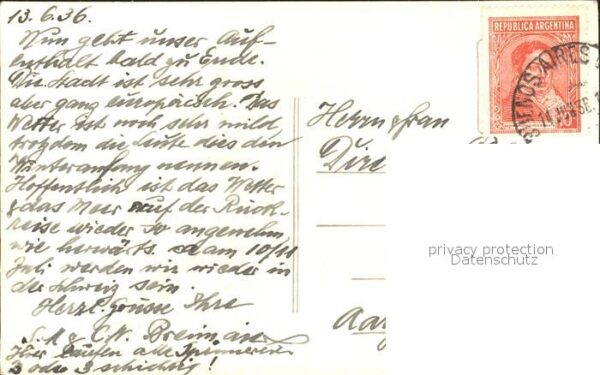 13.6.36.
Nun geht unser Auf-
enthalt bald zu Ende.
Die Stadt ist sehr gross
aber ganz europäisch. Das
Wetter ist noch sehr mild,
trotzdem die Leute dies den
Winteranfang nennen.
Hoffentlich ist das Wetter
& das Meer auf der Rück-
reise wieder so angenehm,
wie herwärts. am 10/11
Juli werden wir wieder in
der Schweiz sein.
Herzl. Grüsse Ihre
S. M & C. W.
Hier laufen alle Spinnereien
2 oder 3 schichtig!
Herrn & Frau
Dire
Aar
REPUBLICA ARGENTINA
BUENOS AIRES
privacy protection
Datenschutz